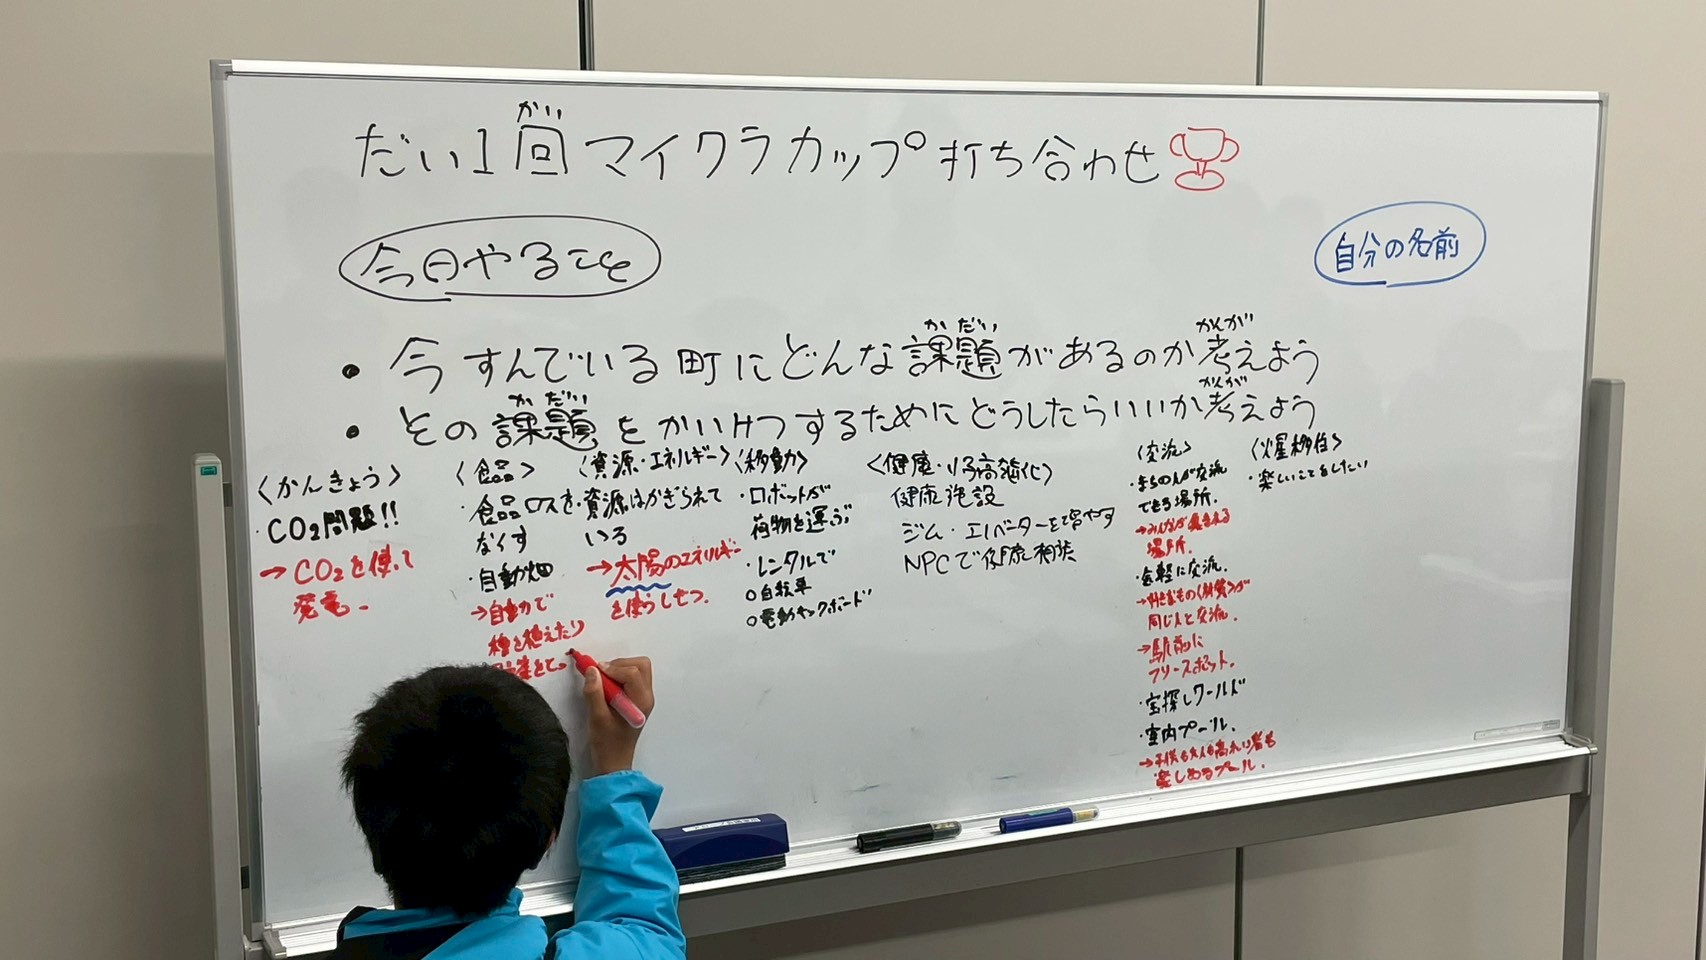 だい1回マイクラカップ打ち合わせ
かい
今日やること
自分の名前
・今すんでいる町にどんな課題があるのか考えよう
かだい
かんが
・その課題をかいけつするためにどうしたらいいか考えよう
かだい
かんが
〈かんきょう〉
・CO2問題!!
→CO2を使って
発電。
〈食品〉
・食品ロスを
なくす
・自動畑
→自動で
種を植えたり
〈資源・エネルギー〉
・資源はかぎられて
いる
→太陽のエネルギー
を使うしせつ。
〈移動〉
・ロボットが
荷物を運ぶ
・レンタルで
○自転車
○電動キックボード
健康施設
ジム・エレベーターを増やす
NPCで健康相談
〈交流〉
・まちの人が交流
できる場所。
→みんなが集まれる
場所。
・気軽に交流。
同じ人と交流。
→駅前に
フリースポット。
・宝探しワールド
・室内プール。
楽しめるプール。
〈火星移住〉
・楽しいことをしたい